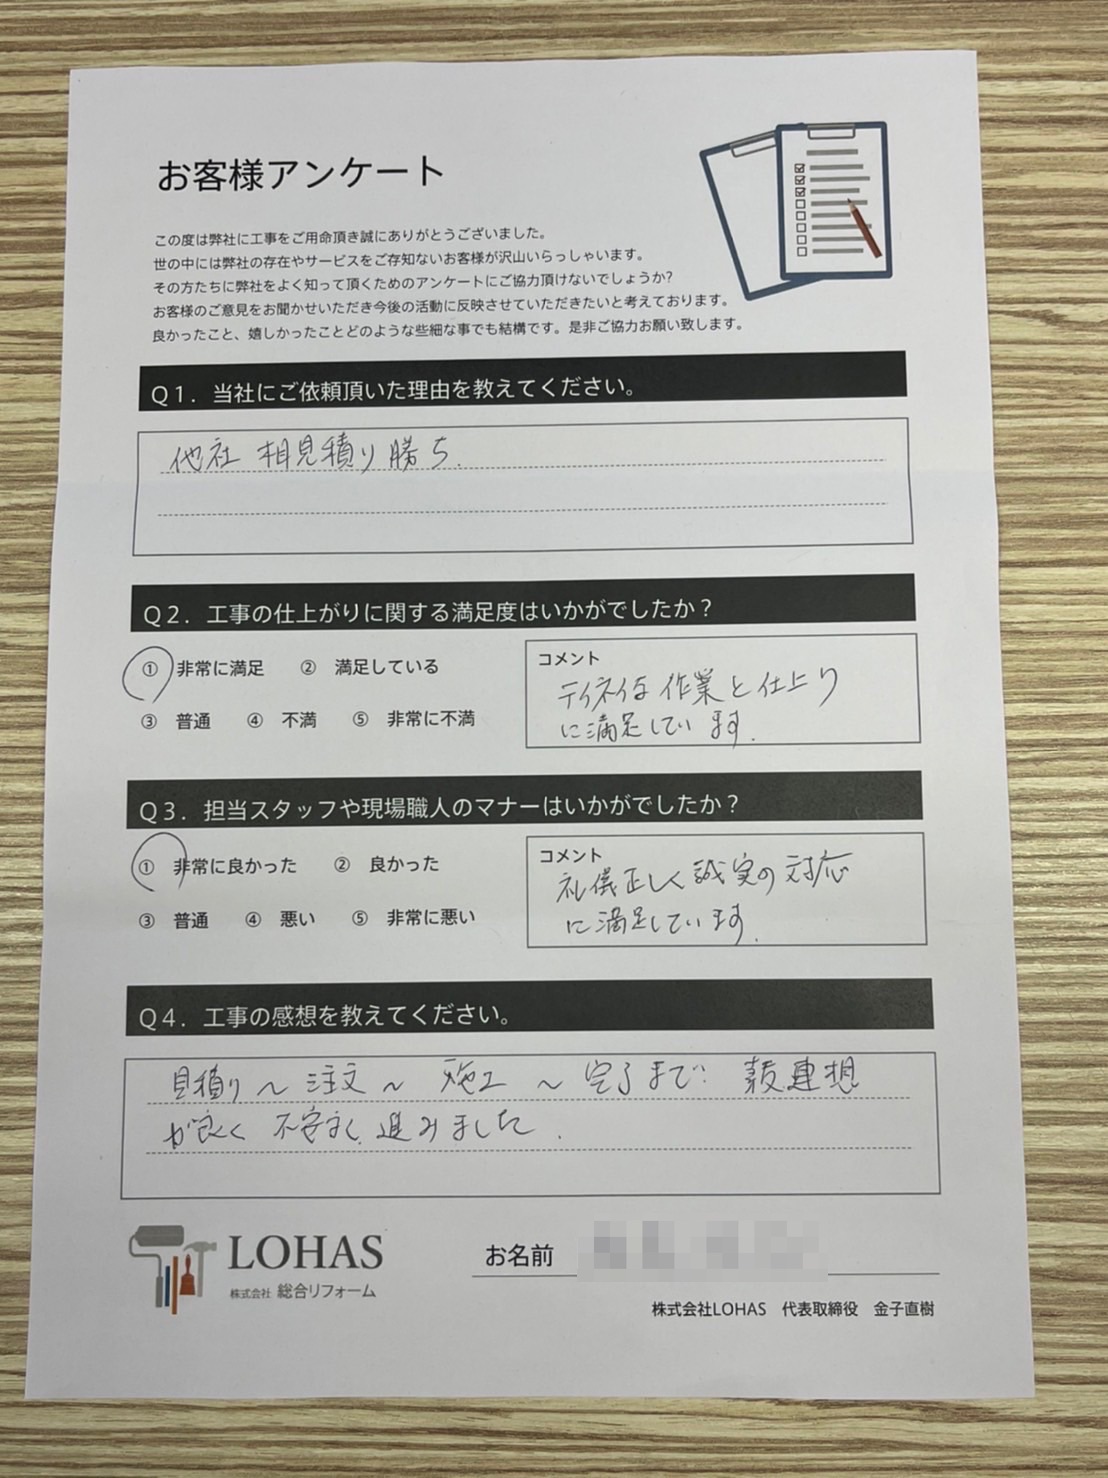 お客様アンケート
この度は弊社に工事をご用命頂き誠にありがとうございました。
世の中には弊社の存在やサービスをご存知ないお客様が沢山いらっしゃいます。
その方たちに弊社をよく知って頂くためのアンケートにご協力頂けないでしょうか?
お客様のご意見をお聞かせいただき今後の活動に反映させていただきたいと考えております。
良かったこと、嬉しかったことどのような些細な事でも結構です。是非ご協力お願い致します。
Q1. 当社にご依頼頂いた理由を教えてください。
他社 相見積り勝ち.
Q2. 工事の仕上がりに関する満足度はいかがでしたか？
① 非常に満足 ② 満足している
③ 普通 ④ 不満 ⑤ 非常に不満
コメント
テイネイな 作業と仕上り
に満足しています.
Q3. 担当スタッフや現場職人のマナーはいかがでしたか？
① 非常に良かった ② 良かった
③ 普通 ④ 悪い ⑤ 非常に悪い
コメント
礼儀正しく誠実の対応
に満足しています.
Q4. 工事の感想を教えてください。
見積り〜注文〜施工〜完了まで
が良く 不安なく 進みました.
LOHAS
株式会社 総合リフォーム
お名前
株式会社LOHAS 代表取締役 金子直樹